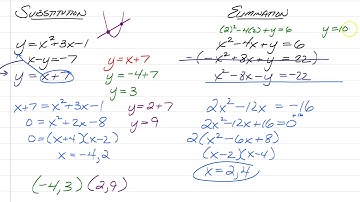 SUBSTITUTION
y = x² + 3x - 1
x - y = -7
y = x + 7
x + 7 = x² + 3x - 1
0 = x² + 2x - 8
0 = (x + 4)(x - 2)
x = -4, 2
y = x + 7
y = -4 + 7
y = 3
y = 2 + 7
y = 9
(-4, 3) (2, 9)
ELIMINATION
(2)² - 4(2) + y = 6
y = 10
x² - 4x + y = 6
-(-x² + 8x + y = -22)
x² - 8x - y = -22
2x² - 12x = -16
2x² - 12x + 16 = 0
+16
2(x² - 6x + 8)
(x - 2)(x - 4)
x = 2, 4